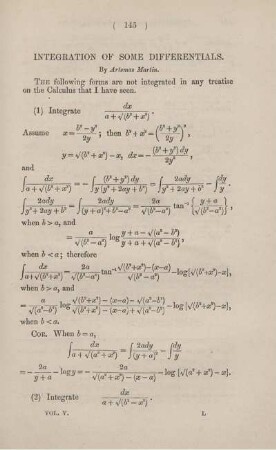 ( 145 )
INTEGRATION OF SOME DIFFERENTIALS.
By Artemas Martin.
THE following forms are not integrated in any treatise
on the Calculus that I have seen.
(1) Integrate dx / a + √(b² + x²) .
Assume x = (b² − y²) / 2y ; then b² + x² = ( (b² + y²) / 2y )² ,
y = √(b² + x²) − x, dx = − (b² + y²) dy / 2y² ,
and
∫ dx / a + √(b² + x²) = − ∫ (b² + y²) dy / y (y² + 2ay + b²) = ∫ 2ady / y² + 2ay + b² − ∫ dy / y .
∫ 2ady / y² + 2ay + b² = ∫ 2ady / (y + a)² + b² − a² = 2a / √(b² − a²) tan⁻¹ { y + a / √(b² − a²) } ,
when b > a, and
= a / √(a² − b²) log y + a − √(a² − b²) / y + a + √(a² − b²) ,
when b < a; therefore
∫ dx / a + √(b² + x²) = 2a / √(b² − a²) tan⁻¹ √(b² + x²) − (x − a) / √(b² − a²) − log {√(b² + x²) − x},
when b > a, and
= a / √(a² − b²) log √(b² + x²) − (x − a) − √(a² − b²) / √(b² + x²) − (x − a) + √(a² − b²) − log {√(b² + x²) − x},
when b < a.
COR. When b = a,
∫ dx / a + √(a² + x²) = ∫ 2ady / (y + a)² − ∫ dy / y
= − 2a / y + a − log y = − 2a / √(a² + x²) − (x − a) − log {√(a² + x²) − x}.
(2) Integrate dx / a + √(b² − x²) .
VOL. V. L